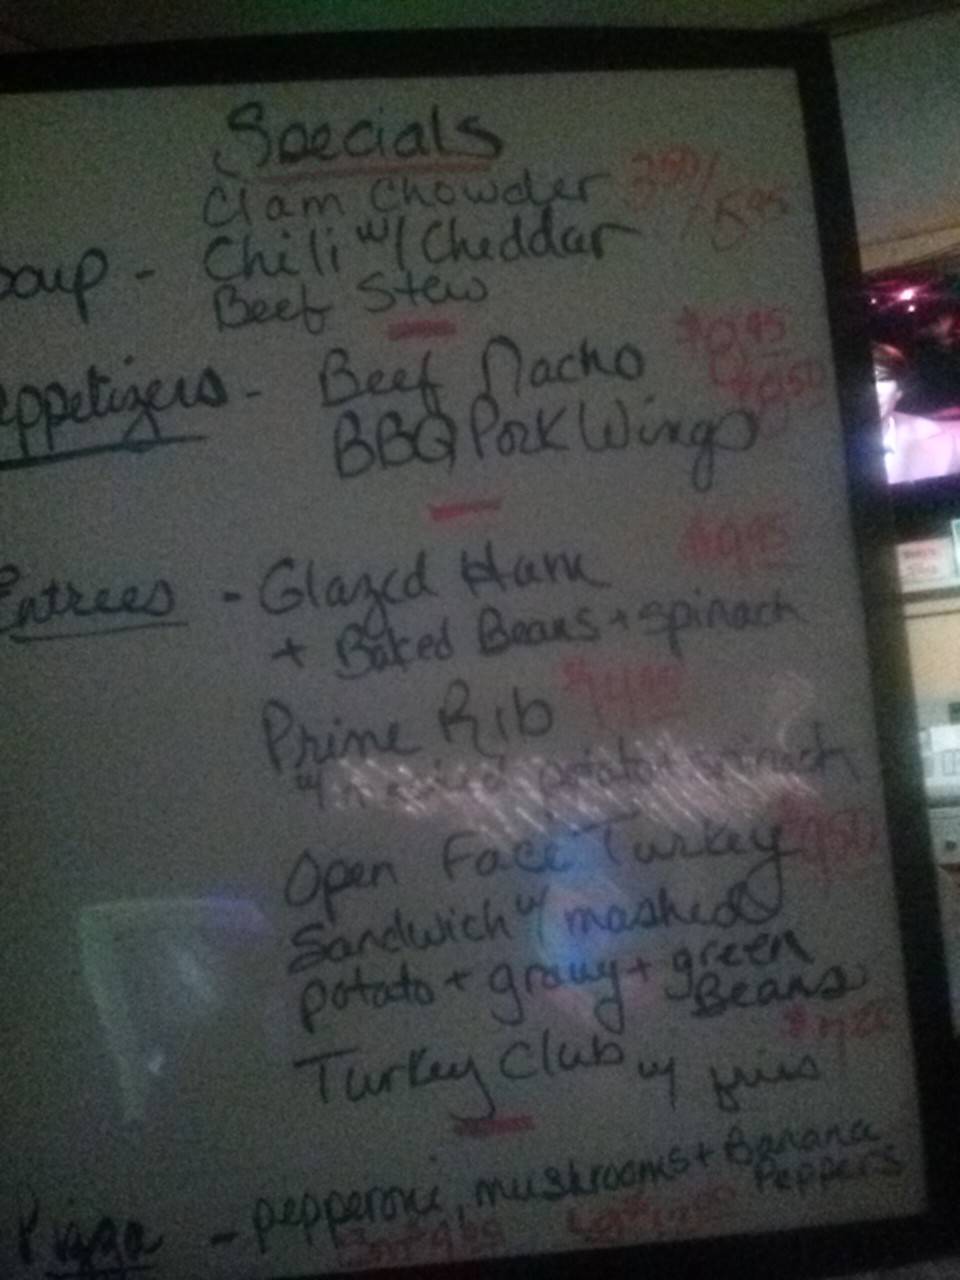 Specials
Clam Chowder 3.50/5.95
Soup - Chili w/ Cheddar
Beef Stew
Appetizers - Beef Nacho
BBQ Pork Wings
Entrees - Glazed Ham
+ Baked Beans + spinach
Prime Rib
w/ potato + spinach
Open Face Turkey
Sandwich w/ mashed
potato + gravy + green
Beans
Turkey Club w/ fries
Pizza - pepperoni, mushrooms + Banana
Peppers